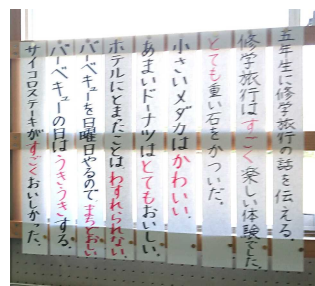 五年生に修学旅行の話を伝える。
修学旅行はすごく楽しい体験でした。
とても重い石をかついだ。
小さいメダカはかわいい。
あまいドーナツはとてもおいしい。
ホテルにとまったことはわすれられない。
バーベキューを日曜日やるのでまちどおしい
バーベキューの日はうきうきする。
サイコロステーキがすごくおいしかった。